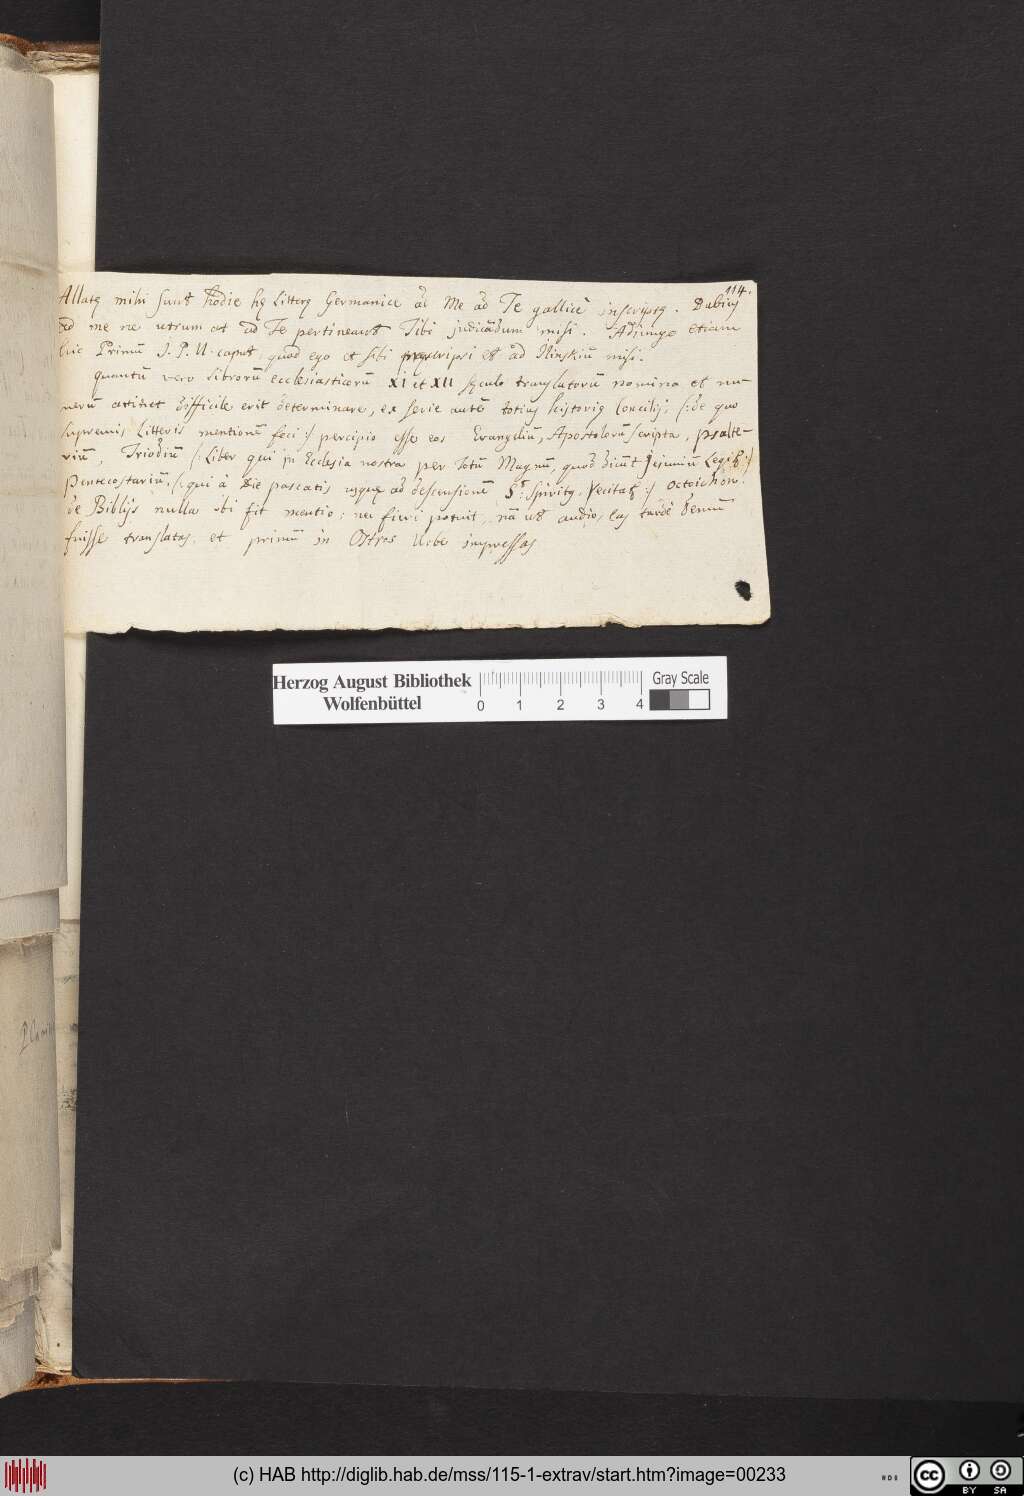 114.
Allatę mihi sunt hodie hę Litterę Germanicè ad Me ad Te gallicè inscriptę. Dubius
ad me ne utrum at ad Te pertineant Tibi judicādum misi. Adjungo etiam
hic Primū J. P. U. caput, quod ego et sibi et ad Ilinskiū misi.
quantū vero librorū ecclesiasticorū XI et XII sęculo translatorū nomina et nu-
merū attinet difficile erit determinare, ex serie autē totius historię Concilij, /: de quo
supremis Litteris mentionē feci :/ percipio esse eos Evangeliū, Apostolorū scripta, psalte-
riū, Triodiū /: Liber qui in Ecclesia nostra per totū Magnū, quod dicūt Jejuniū Legit :/
Pentecostariū, /: qui à Die pascatis usque ad descensionē S: Spiritę recitat :/ octoichon.
de Biblijs nulla ibi fit mentio; nec fieri potuit, nā ut audio, eas tardè demū
fuisse translatas, et primū in Ostros Urbe impressas
Herzog August Bibliothek
Wolfenbüttel
0 1 2 3 4
Gray Scale
(c) HAB http://diglib.hab.de/mss/115-1-extrav/start.htm?image=00233
cc BY SA